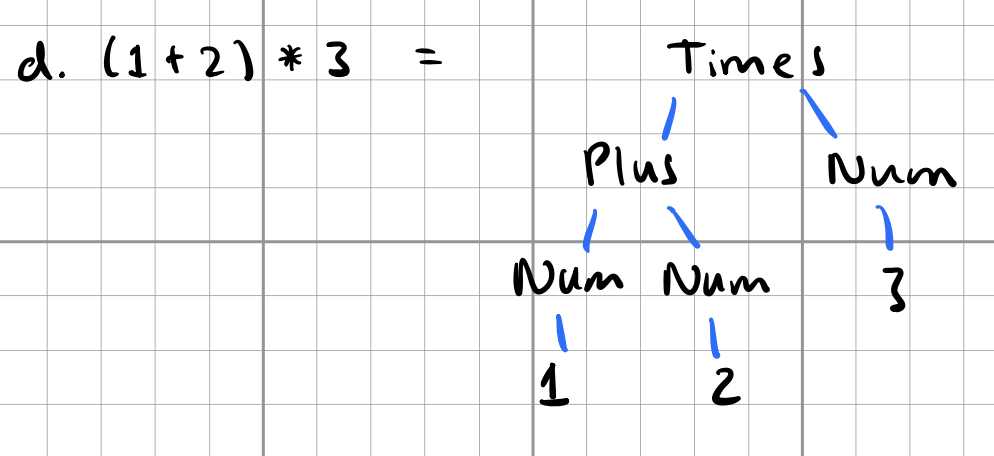 d. (1 + 2) * 3 = Times
Plus Num
Num Num 3
1 2